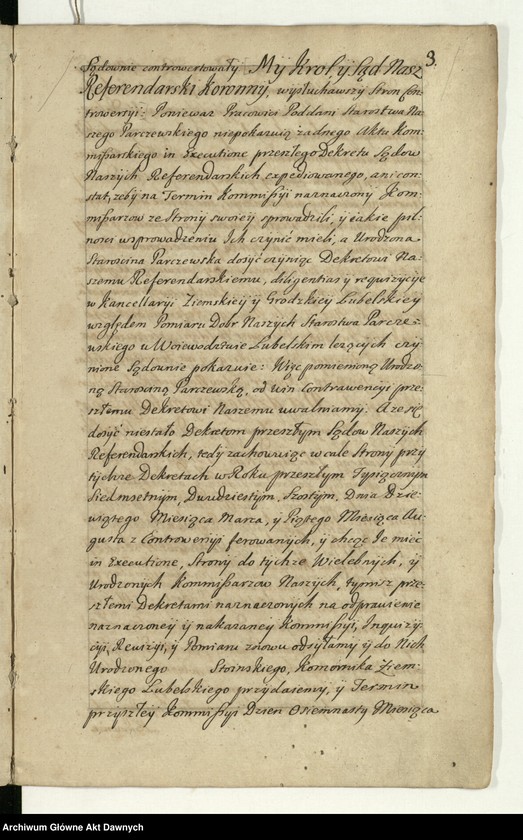 3.
Sądownie controwertowały My Krol y Sąd Nasz
Referendarski Koronny, wysłuchawszy Stron Con-
trowersyi: Ponieważ Pracowici Poddani Starostwa Na-
szego Parczewskiego niepokazuią żadnego Aktu Kom-
missarskiego in Executione przeszłego Dekretu Sądow
Naszych Referendarskich expediowanego, ani con-
stat, żeby na Termin Kommissyi naznaczony Kom-
missarzow ze Strony swoiey sprowadzili, y iakie pil-
ności wsprowadzeniu Ich czynić mieli, a Urodzona
Starościna Parczewska dosyć czyniąc Dekretowi Na-
szemu Referendarskiemu, diligentias y requizycye
w Kancellaryi Ziemskiey y Grodzkiey Lubelskiey
względem Pomiaru Dobr Naszych Starostwa Parcze-
wskiego w Woiewodztwie Lubelskim leżących czy-
nione Sądownie pokazuie: Więc pomienioną Urodzo-
ną Starościnę Parczewską, od win contrawencyi prze-
szłemu Dekretowi Naszemu uwalniamy. A że się
dosyć niestało Dekretom przeszłym Sądow Naszych
Referendarskich, tedy zachowuiąc wcale Strony przy
tychże Dekretach w Roku przeszłym Tysiącznym
Siedmsetnym, Dwudziestym, Szostym, Dnia Dzie-
wiątego Miesiąca Marca, y Piątego Miesiąca Au-
gusta z Controwersyi ferowanych, y chcąc Ie mieć
in Executione, Strony do tychże Wielebnych, y
Urodzonych Kommissarzow Naszych, tymisz prze-
szłemi Dekretami naznaczonych na odprawienie
naznaczoney y nakazaney Kommissyi, Inquizy-
cyi, Rewizyi, y Pomiaru znowu odsyłamy y do Nich
Urodzonego Stoinskiego, Komornika Ziem-
skiego Lubelskiego przydaiemy, y Termin
przyszłey Kommissyi Dzien Osiemnasty Miesiąca
Archiwum Główne Akt Dawnych